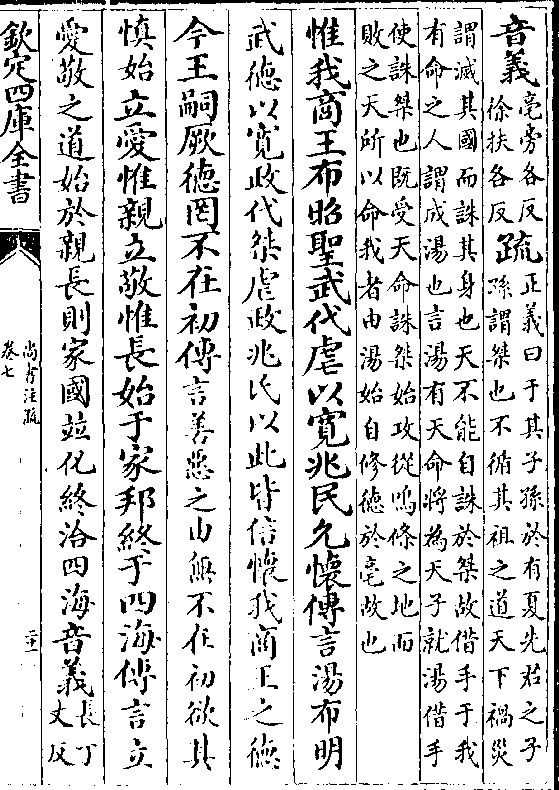 音義亳旁各反
徐扶各反疏正義曰于其子孫於有夏先君之子
孫謂桀也不循其祖之道天下禍災
謂滅其國而誅其身也天不能自誅於桀故借手于我
有命之人謂成湯也言湯有天命將為天子就湯借手
使誅桀也既受天命誅桀始攻從鳴條之地而
敗之天所以命我者由湯始自修德於亳故也
惟我商王布昭聖武代虐以寬兆民允懷傳言湯布明
武德以寬政代桀虐政兆民以此皆信懷我商王之德
今王嗣厥德罔不在初傳言善惡之由無不在初欲其
慎始立愛惟親立敬惟長始于家邦終于四海傳言立
愛敬之道始於親長則家國並化終洽四海音義長丁
丈反
欽定四庫全書
尚書注疏
卷七
二十一